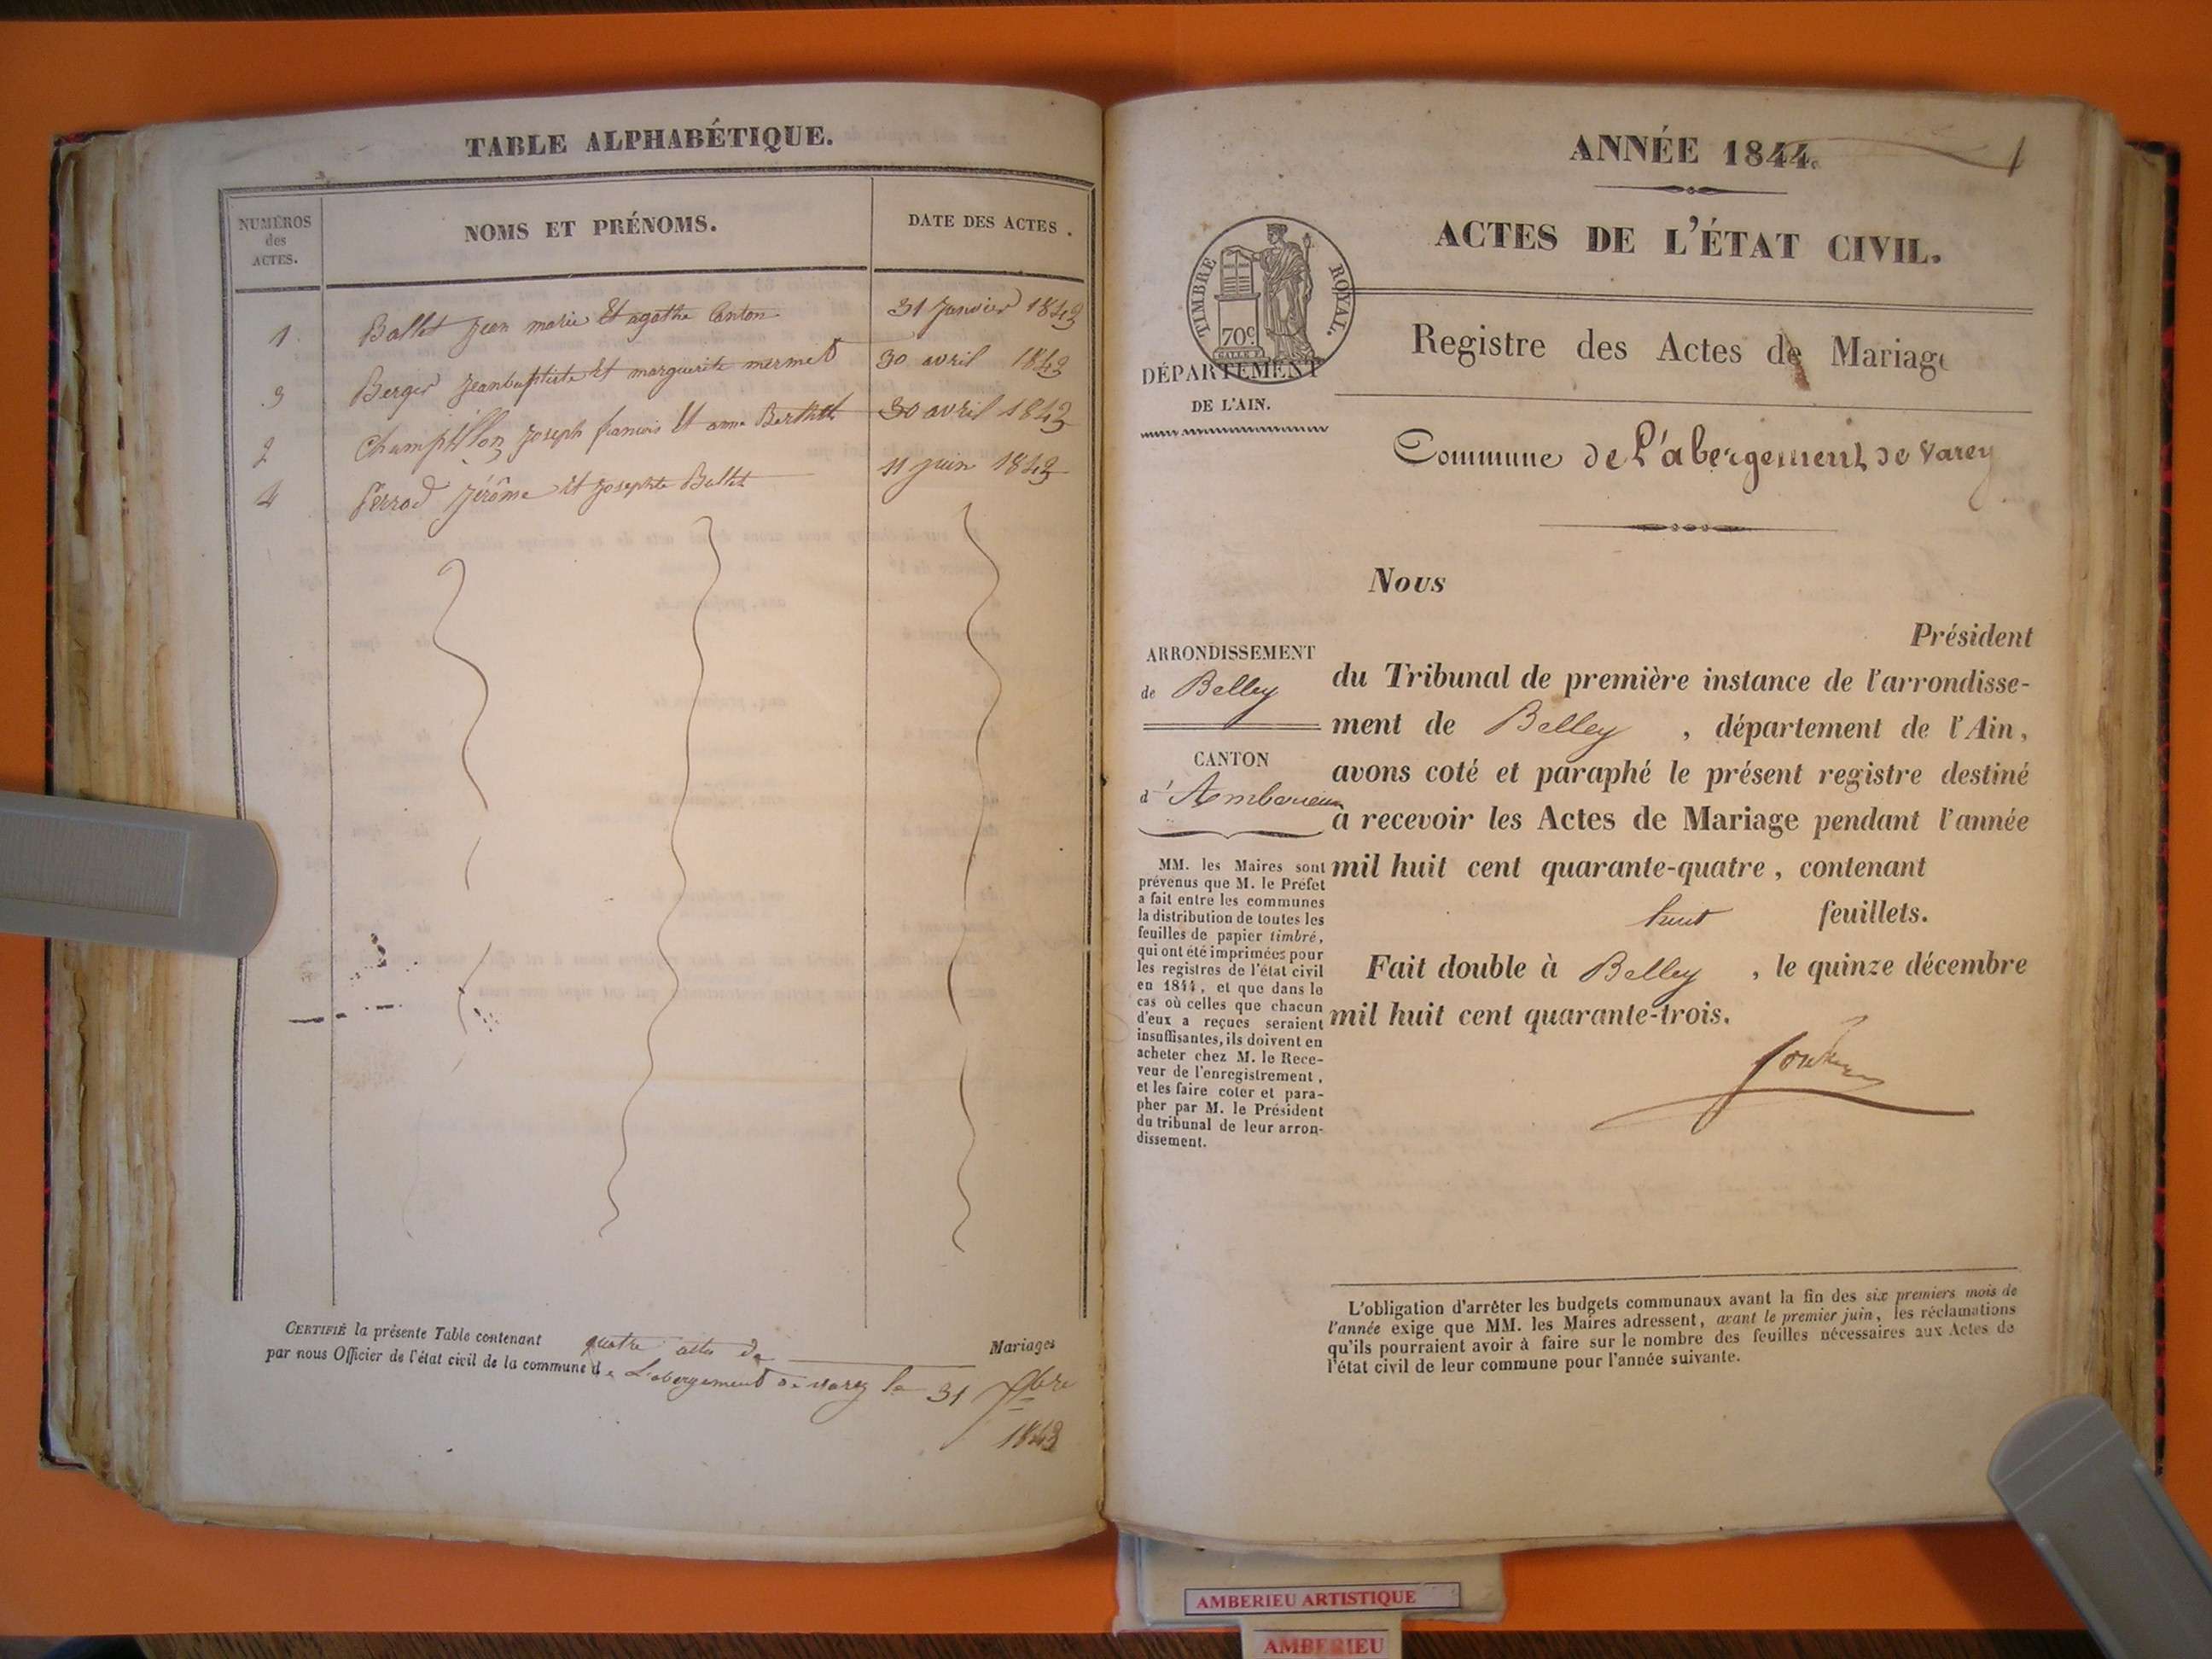 TABLE ALPHABÉTIQUE.
NUMÉROS
des
ACTES.
NOMS ET PRÉNOMS.
DATE DES ACTES.
1. Ballet Jean marie Et agathe 31 Janvier 1843
3 Berger Jeanbaptiste Et marguerite mermet 30 avril 1843
2 Joseph francois Et anne Berthet 30 avril 1843
4 Perrod Jérôme Et Josephte Ballet 11 juin 1843
CERTIFIÉ la présente Table contenant quatre actes de Mariages
par nous Officier de l'état civil de la commune de L'abergement de varey le 31
1843
ANNÉE 1844.
1
ACTES DE L'ÉTAT CIVIL.
TIMBRE ROYAL.
70c
Registre des Actes de Mariage
DÉPARTEMENT
DE L'AIN.
Commune de L'abergement de Varey
Nous
Président
du Tribunal de première instance de l'arrondisse-
ment de Belley , département de l'Ain,
avons coté et paraphé le présent registre destiné
a recevoir les Actes de Mariage pendant l'année
mil huit cent quarante-quatre, contenant
huit feuillets.
Fait double à Belley , le quinze décembre
mil huit cent quarante-trois.
ARRONDISSEMENT
de Belley
CANTON
d'Amberieux
MM. les Maires sont
prévenus que M. le Préfet
a fait entre les communes
la distribution de toutes les
feuilles de papier timbré,
qui ont été imprimées pour
les registres de l'état civil
en 1844, et que dans le
cas où celles que chacun
d'eux a reçues seraient
insuffisantes, ils doivent en
acheter chez M. le Rece-
veur de l'enregistrement,
et les faire coter et para-
pher par M. le Président
du tribunal de leur arron-
dissement.
L'obligation d'arrêter les budgets communaux avant la fin des six premiers mois de
l'année exige que MM. les Maires adressent, avant le premier juin, les réclamations
qu'ils pourraient avoir à faire sur le nombre des feuilles nécessaires aux Actes de
l'état civil de leur commune pour l'année suivante.
AMBERIEU ARTISTIQUE
AMBERIEU